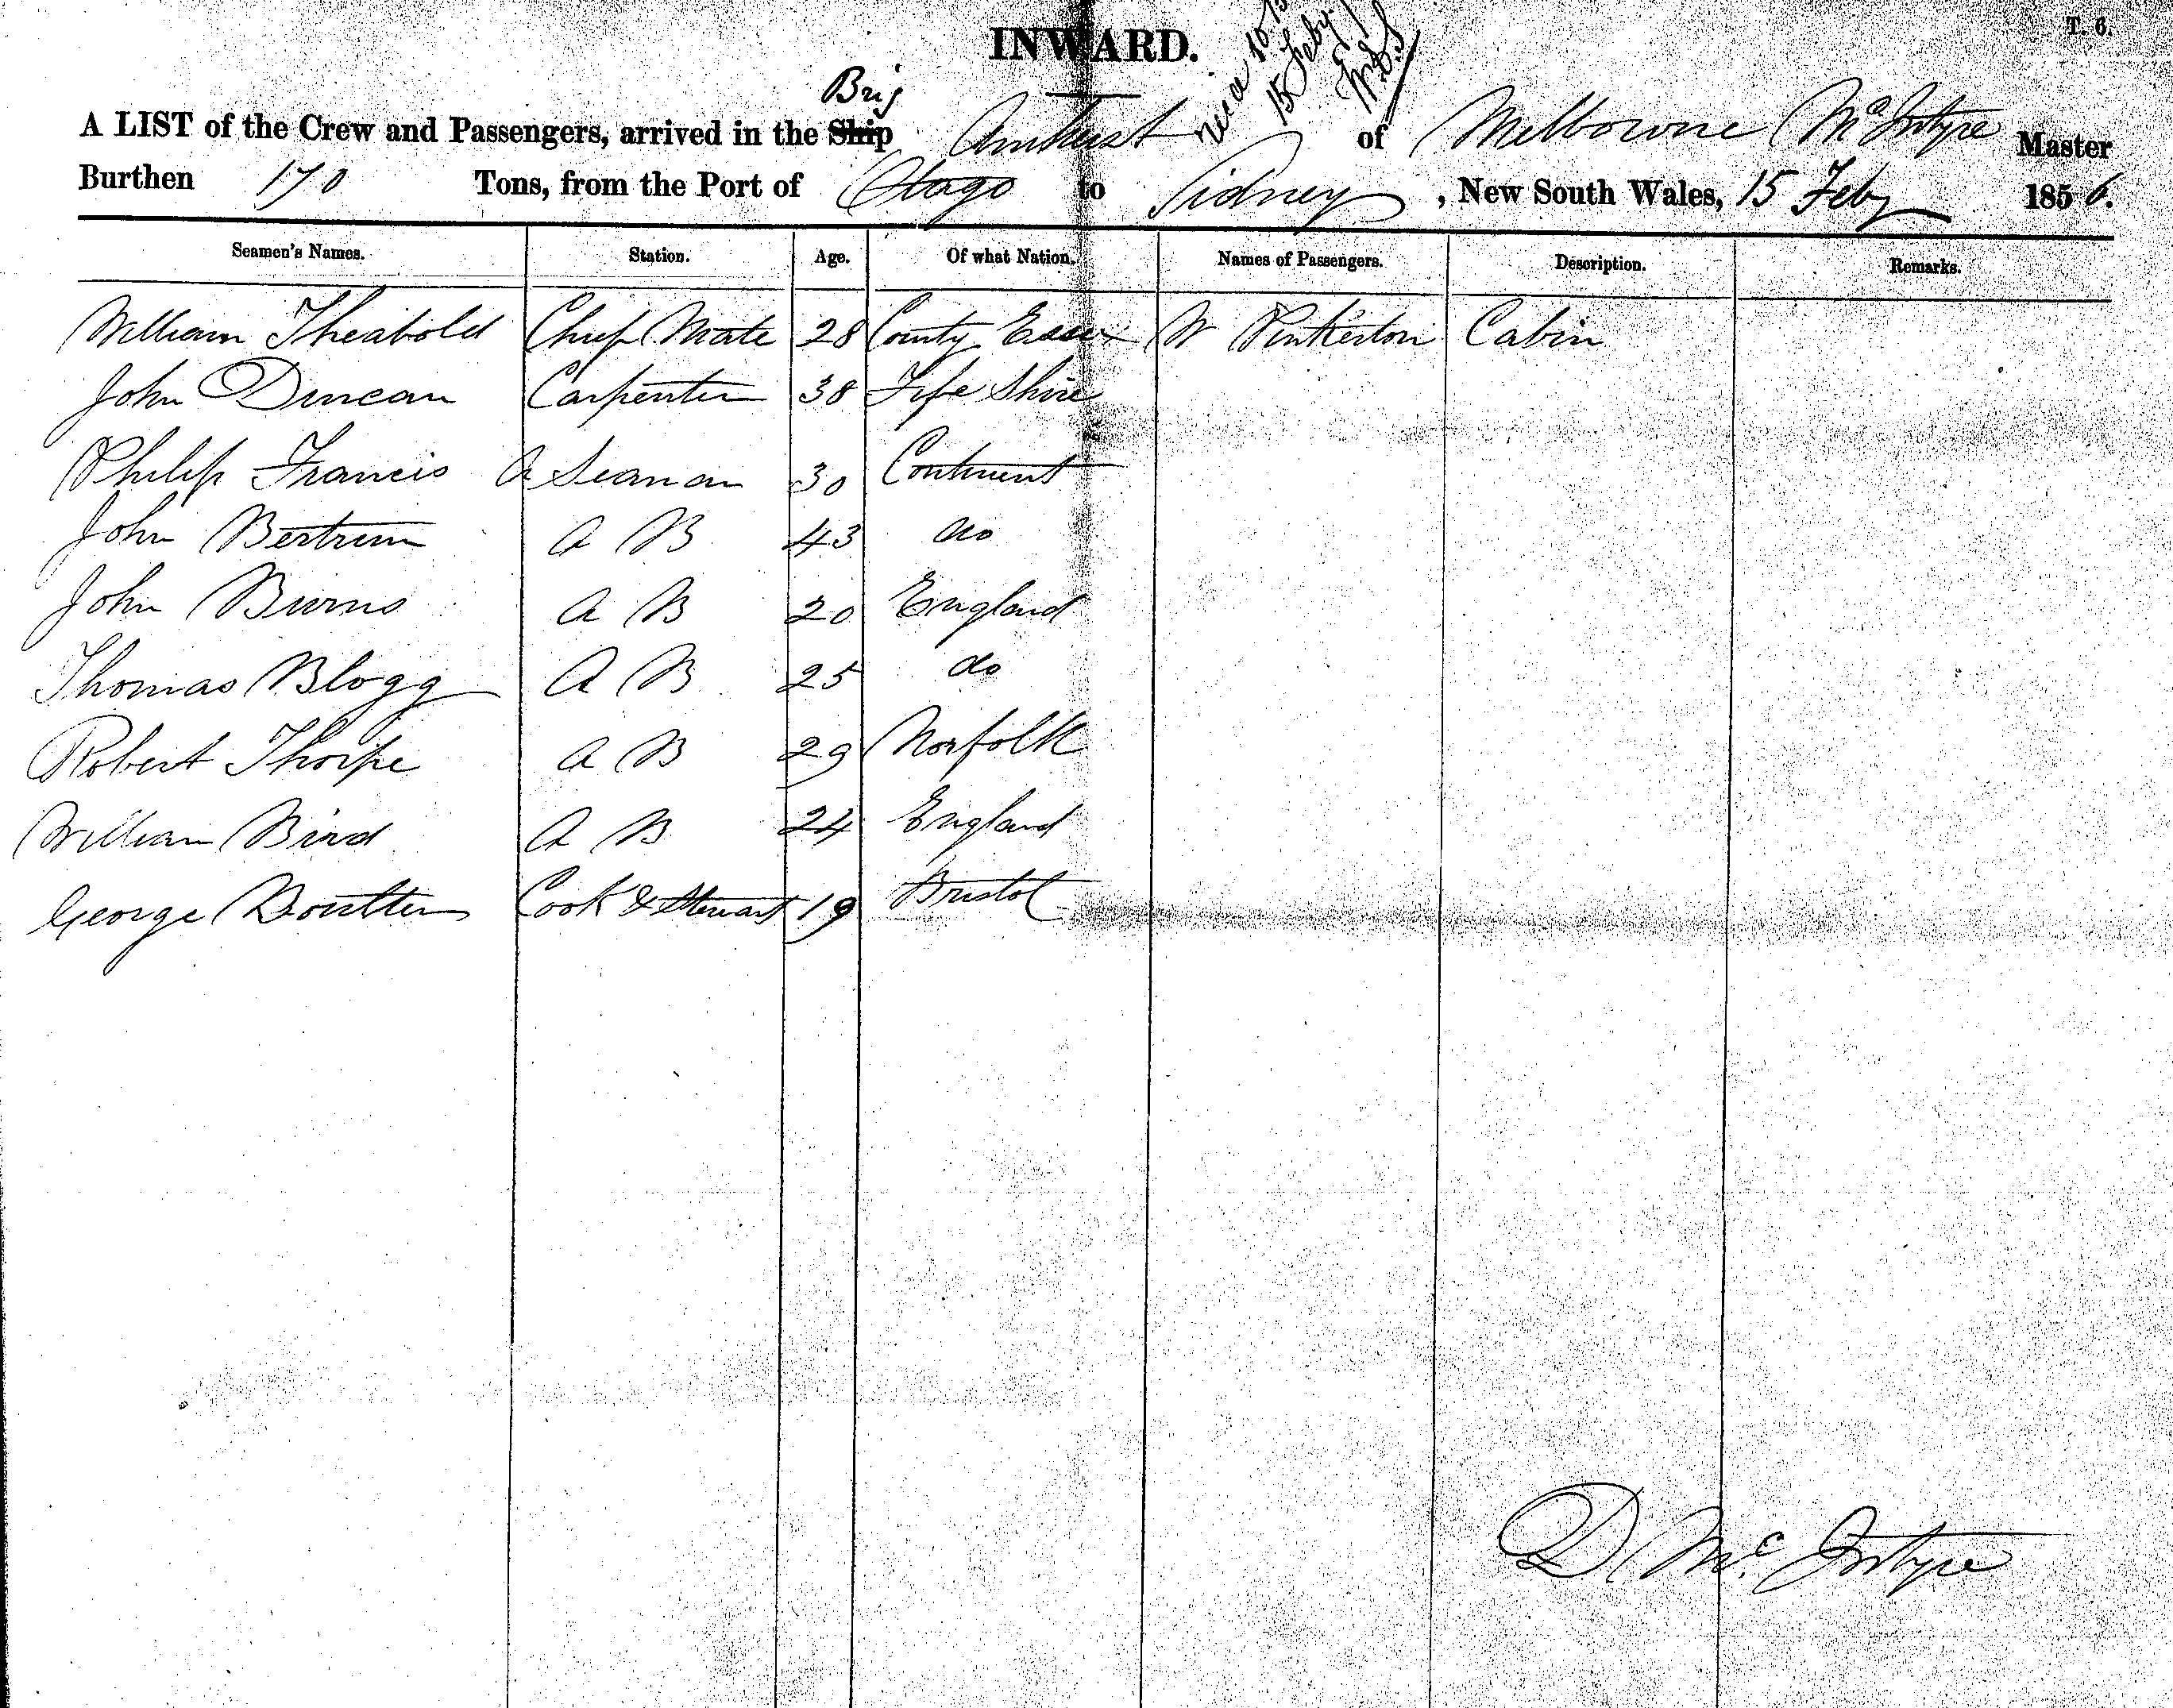 T. 6.
INWARD.
15 Feby
Brig
A LIST of the Crew and Passengers, arrived in the Ship Amherst of Melbowrne McIntyre Master
Burthen 170 Tons, from the Port of Otago to Sidney, New South Wales, 15 Feby 1856.
Seamen's Names. Station. Age. Of what Nation. Names of Passengers. Description. Remarks.
William Theabold Chief Mate 28 County Essex W Pinkerton Cabin
John Duncan Carpenter 38 Fife Shire
Philip Francis A Seaman 30 Continent
John Bertrum A B 43 do
John Burns A B 20 England
Thomas Blogg A B 25 do
Robert Thorpe A B 29 Norfolk
William Bird A B 24 England
George Boulten Cook & Stewart 19 Bristol
D McIntyre